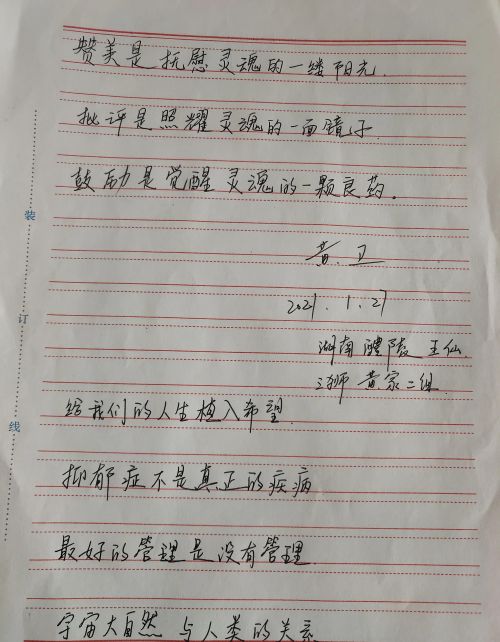 赞美是抚慰灵魂的一缕阳光.
批评是照耀灵魂的一面镜子
鼓励是觉醒灵魂的一颗良药.
黄卫
2021.1.27
湖南醴陵 王仙.
三狮黄家二组.
给我们的人生植入希望.
抑郁症不是真正的疾病
最好的管理是没有管理
宇宙大自然与人类的关系
装
订
线